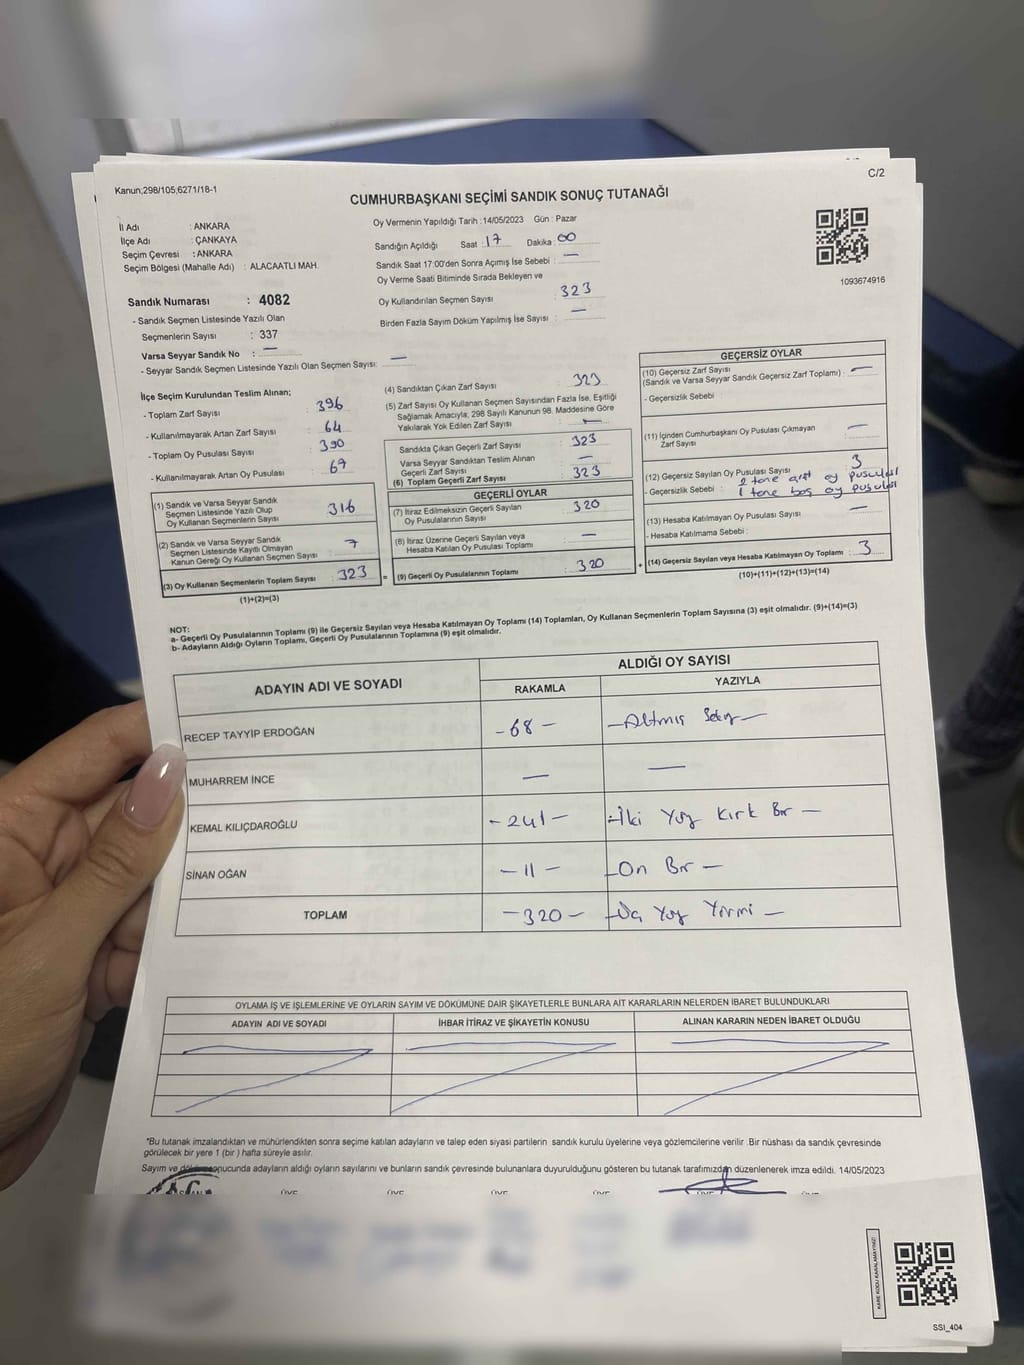 Kanun;298/105;6271/18-1
C/2
CUMHURBAŞKANI SEÇİMİ SANDIK SONUÇ TUTANAĞI
İl Adı : ANKARA
İlçe Adı : ÇANKAYA
Seçim Çevresi : ANKARA
Seçim Bölgesi (Mahalle Adı) : ALACAATLI MAH.
Sandık Numarası : 4082
- Sandık Seçmen Listesinde Yazılı Olan
Seçmenlerin Sayısı : 337
Varsa Seyyar Sandık No : —
- Seyyar Sandık Seçmen Listesinde Yazılı Olan Seçmen Sayısı: —
Oy Vermenin Yapıldığı Tarih :14/05/2023 Gün : Pazar
Sandığın Açıldığı Saat : 17 Dakika : 00
Sandık Saat 17:00'den Sonra Açımış İse Sebebi : —
Oy Verme Saati Bitiminde Sırada Bekleyen ve
Oy Kullandırılan Seçmen Sayısı : 323
Birden Fazla Sayım Döküm Yapılmış İse Sayısı : —
1093674916
İlçe Seçim Kurulundan Teslim Alınan;
- Toplam Zarf Sayısı : 396
- Kullanılmayarak Artan Zarf Sayısı : 64
- Toplam Oy Pusulası Sayısı : 390
- Kullanılmayarak Artan Oy Pusulası : 67
(1) Sandık ve Varsa Seyyar Sandık
Seçmen Listesinde Yazılı Olup
Oy Kullanan Seçmenlerin Sayısı : 316
(2) Sandık ve Varsa Seyyar Sandık
Seçmen Listesinde Kayıtlı Olmayan
Kanun Gereği Oy Kullanan Seçmen Sayısı : 7
(3) Oy Kullanan Seçmenlerin Toplam Sayısı : 323
(1)+(2)=(3)
(4) Sandıktan Çıkan Zarf Sayısı : 323
(5) Zarf Sayısı Oy Kullanan Seçmen Sayısından Fazla İse, Eşitliği
Sağlamak Amacıyla, 298 Sayılı Kanunun 98. Maddesine Göre
Yakılarak Yok Edilen Zarf Sayısı : —
Sandıkta Çıkan Geçerli Zarf Sayısı : 323
Varsa Seyyar Sandıktan Teslim Alınan
Geçerli Zarf Sayısı : —
(6) Toplam Geçerli Zarf Sayısı : 323
GEÇERLİ OYLAR
(7) İtiraz Edilmeksizin Geçerli Sayılan
Oy Pusulalarının Sayısı : 320
(8) İtiraz Üzerine Geçerli Sayılan veya
Hesaba Katılan Oy Pusulası Toplamı : —
= (9) Geçerli Oy Pusulalarının Toplamı : 320
GEÇERSİZ OYLAR
(10) Geçersiz Zarf Sayısı
(Sandık ve Varsa Seyyar Sandık Geçersiz Zarf Toplamı) : —
- Geçersizlik Sebebi :
(11) İçinden Cumhurbaşkanı Oy Pusulası Çıkmayan
Zarf Sayısı : —
(12) Geçersiz Sayılan Oy Pusulası Sayısı : 3
- Geçersizlik Sebebi : 2 tane oy pusulası
1 tane boş oy pusulası
(13) Hesaba Katılmayan Oy Pusulası Sayısı : —
- Hesaba Katılmama Sebebi :
+ (14) Geçersiz Sayılan veya Hesaba Katılmayan Oy Toplamı : 3
(10)+(11)+(12)+(13)=(14)
NOT:
a- Geçerli Oy Pusulalarının Toplamı (9) ile Geçersiz Sayılan veya Hesaba Katılmayan Oy Toplamı (14) Toplamları, Oy Kullanan Seçmenlerin Toplam Sayısına (3) eşit olmalıdır. (9)+(14)=(3)
b- Adayların Aldığı Oyların Toplamı, Geçerli Oy Pusulalarının Toplamına (9) eşit olmalıdır.
ADAYIN ADI VE SOYADI
ALDIĞI OY SAYISI
RAKAMLA YAZIYLA
RECEP TAYYİP ERDOĞAN - 68 - - Altmış Sekiz -
MUHARREM İNCE — —
KEMAL KILIÇDAROĞLU - 241 - - İki Yüz Kırk Bir -
SİNAN OĞAN - 11 - - On Bir -
TOPLAM - 320 - - Üç Yüz Yirmi -
OYLAMA İŞ VE İŞLEMLERİNE VE OYLARIN SAYIM VE DÖKÜMÜNE DAİR ŞİKAYETLERLE BUNLARA AİT KARARLARIN NELERDEN İBARET BULUNDUKLARI
ADAYIN ADI VE SOYADI İHBAR İTİRAZ VE ŞİKAYETİN KONUSU ALINAN KARARIN NEDEN İBARET OLDUĞU
"Bu tutanak imzalandıktan ve mühürlendikten sonra seçime katılan adayların ve talep eden siyasi partilerin sandık kurulu üyelerine veya gözlemcilerine verilir .Bir nüshası da sandık çevresinde
görülecek bir yere 1 (bir ) hafta süreyle asılır.
Sayım ve sonucunda adayların aldığı oyların sayılarını ve bunların sandık çevresinde bulunanlara duyurulduğunu gösteren bu tutanak tarafımızdan düzenlenerek imza edildi. 14/05/2023
ÜYE ÜYE ÜYE ÜYE ÜYE ÜYE
KARE KODU KARALAMAYINIZ!
SSI_404